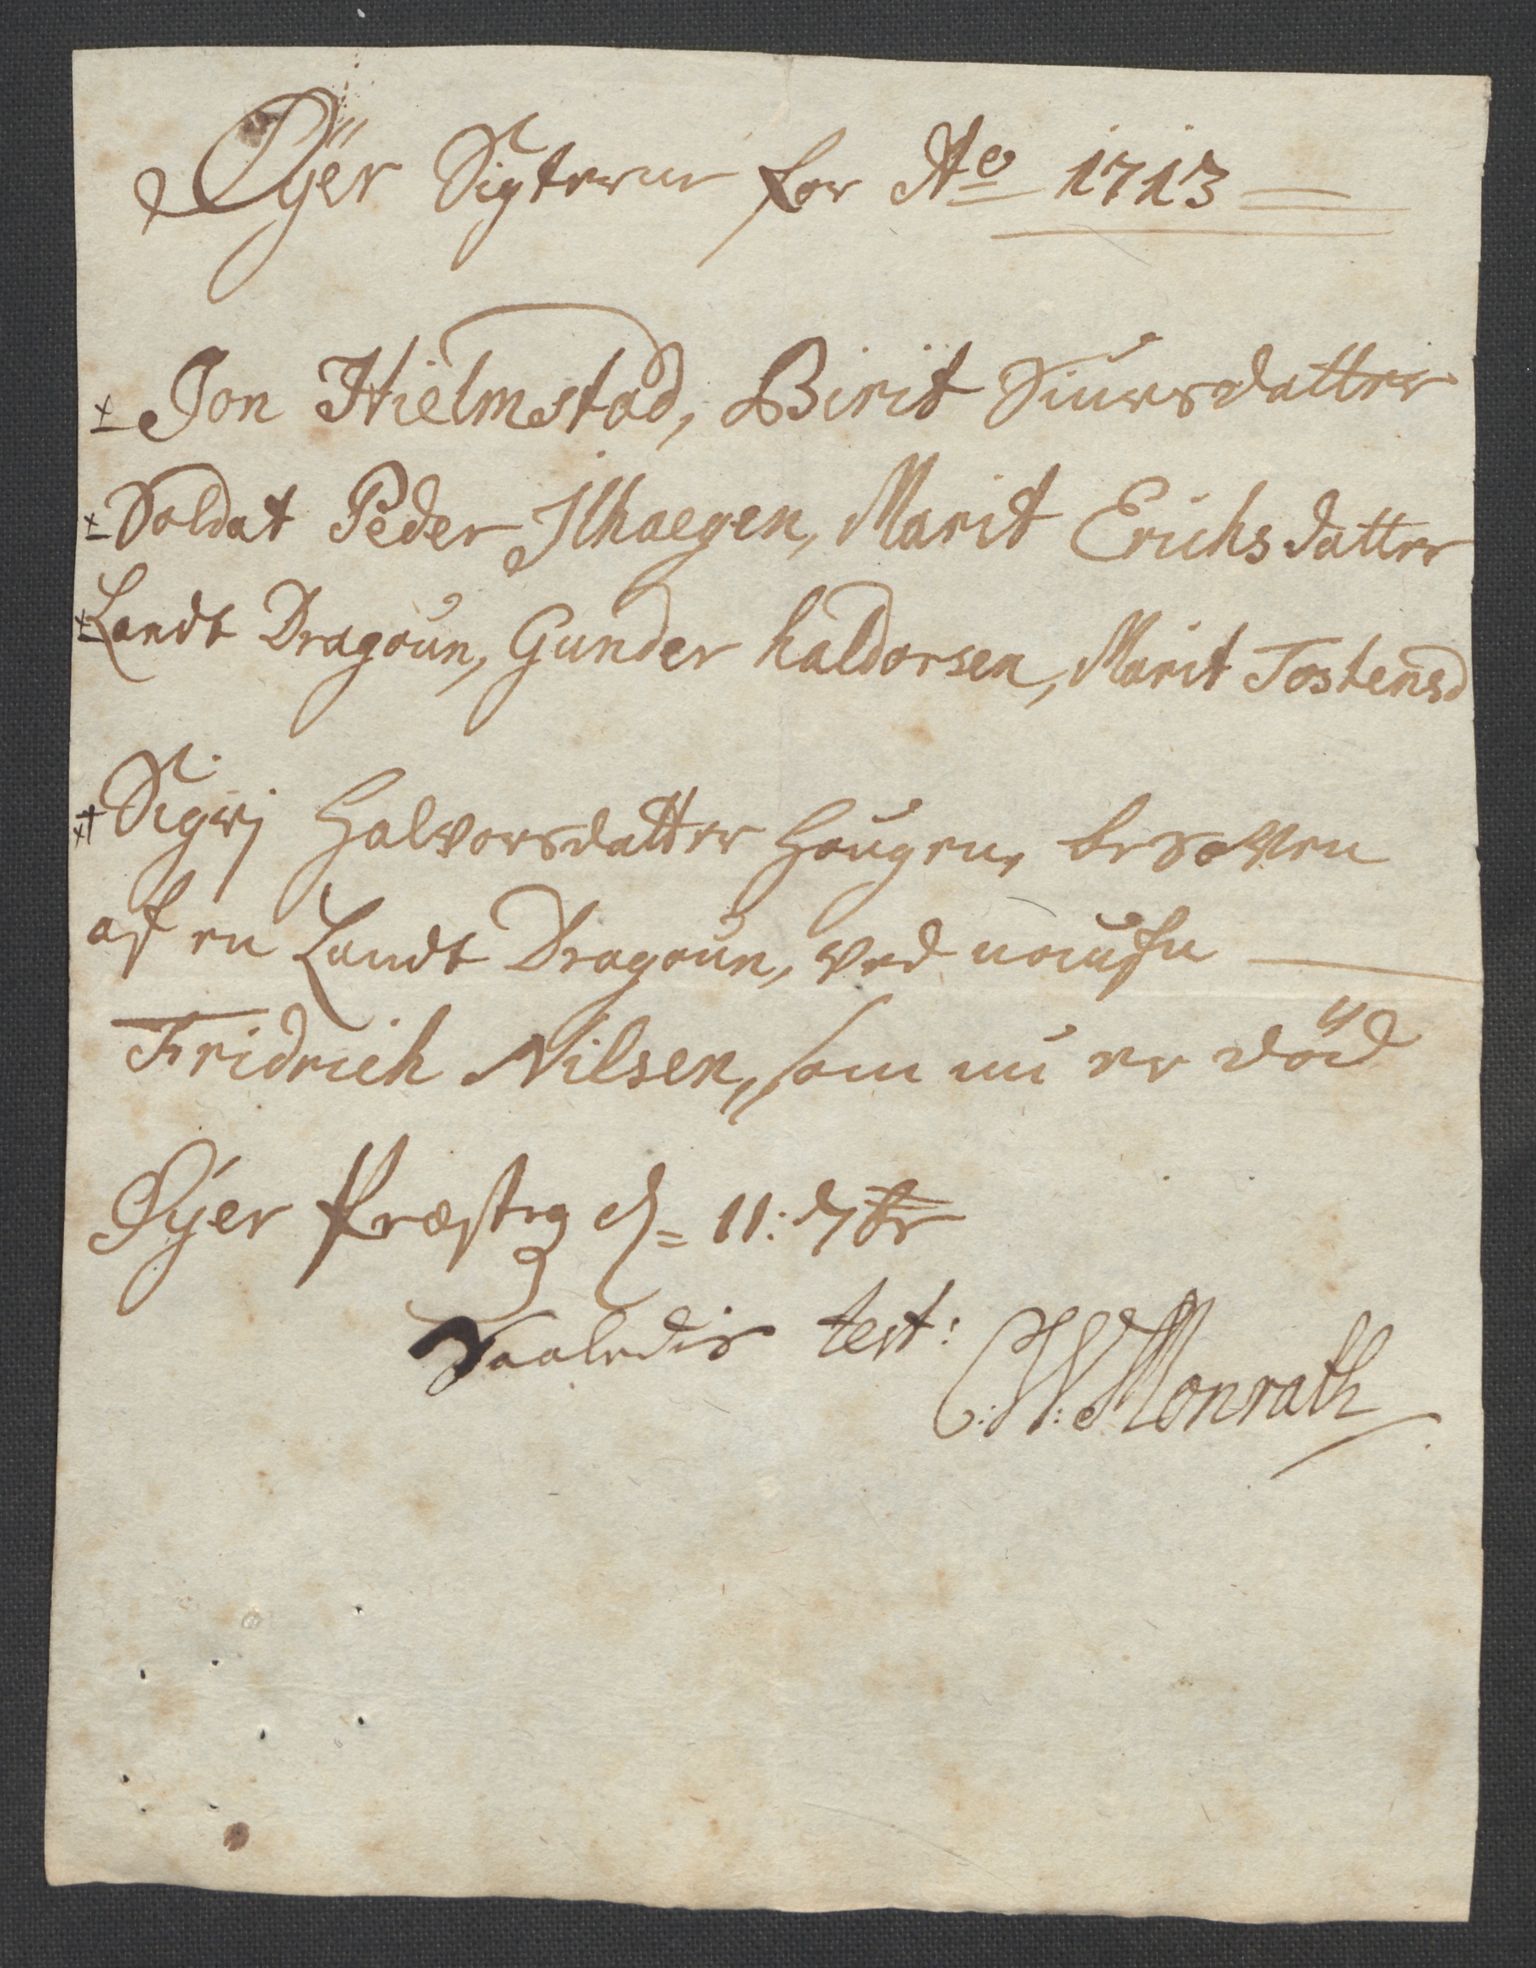 Øÿer Sigterne for Ao 1713
Jon Hielmstad, Birit Siursdatter
Soldat Peder Ilhaegen, Marit Erichsdatter
Landt Dragoun, Gunder haldorsen, Marit Tostensd
Sigrj Halvorsdatter Haugen, besoffven
af en Landt Dragoun, ved naufn
Fridrich Nilsen, som nu er död
Øÿer Præsteg d = 11: 7br
Saaledis test:
W: Monrath